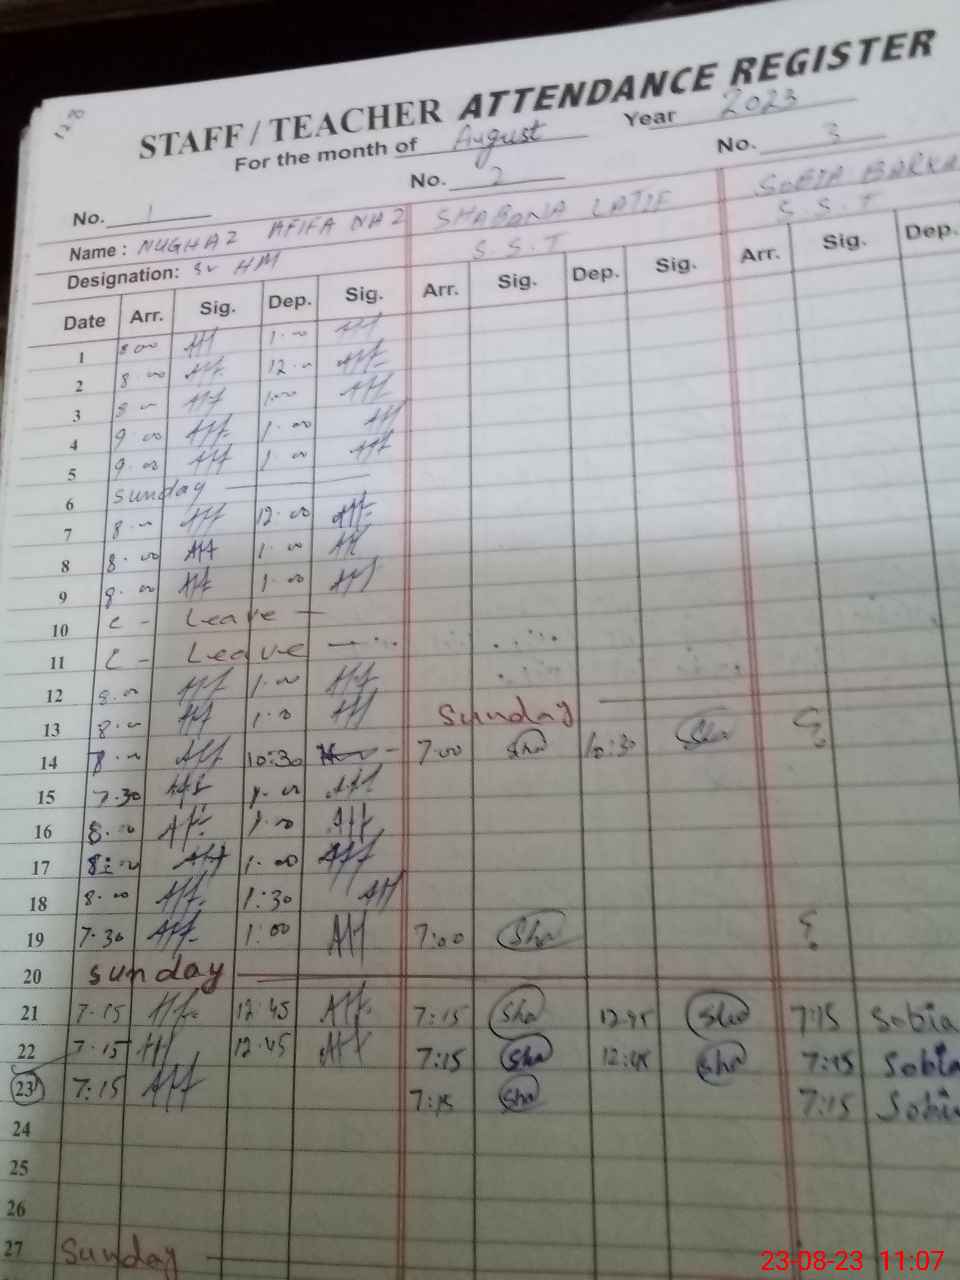 STAFF / TEACHER ATTENDANCE REGISTER
For the month of August Year 2023
No. 1 No. 2 No. 3
Name : NUGHAZ AFIFA NAZ SHABANA LATIF SOBIA BARKA
Designation: Sr HM S.S.T S.S.T
Date Arr. Sig. Dep. Sig. Arr. Sig. Dep. Sig. Arr. Sig. Dep.
1 8.00 1.00
2 8.00 12.00
3 8.00 1.00
4 9.00 1.00
5 9.00 1.00
6 Sunday
7 8.00 12.00
8 8.00 1.00
9 8.00 1.00
10 C - Leave
11 C - Leave
12 8.00 1.00
13 8.00 1.00 Sunday
14 8.00 10:30 7:00 Sha 10:30 Sha
15 7.30 1.00
16 8.00 1.00
17 8:00 1.00
18 8.00 1:30
19 7.30 1:00 7:00 Sha
20 Sunday
21 7.15 12:45 7:15 Sha 12:45 Sha 7:15 Sobia
22 7.15 12:45 7:15 Sha 12:45 Sha 7:15 Sobia
23 7:15 7:15 Sha 7:15 Sobia
24
25
26
27 Sunday
23-08-23 11:07